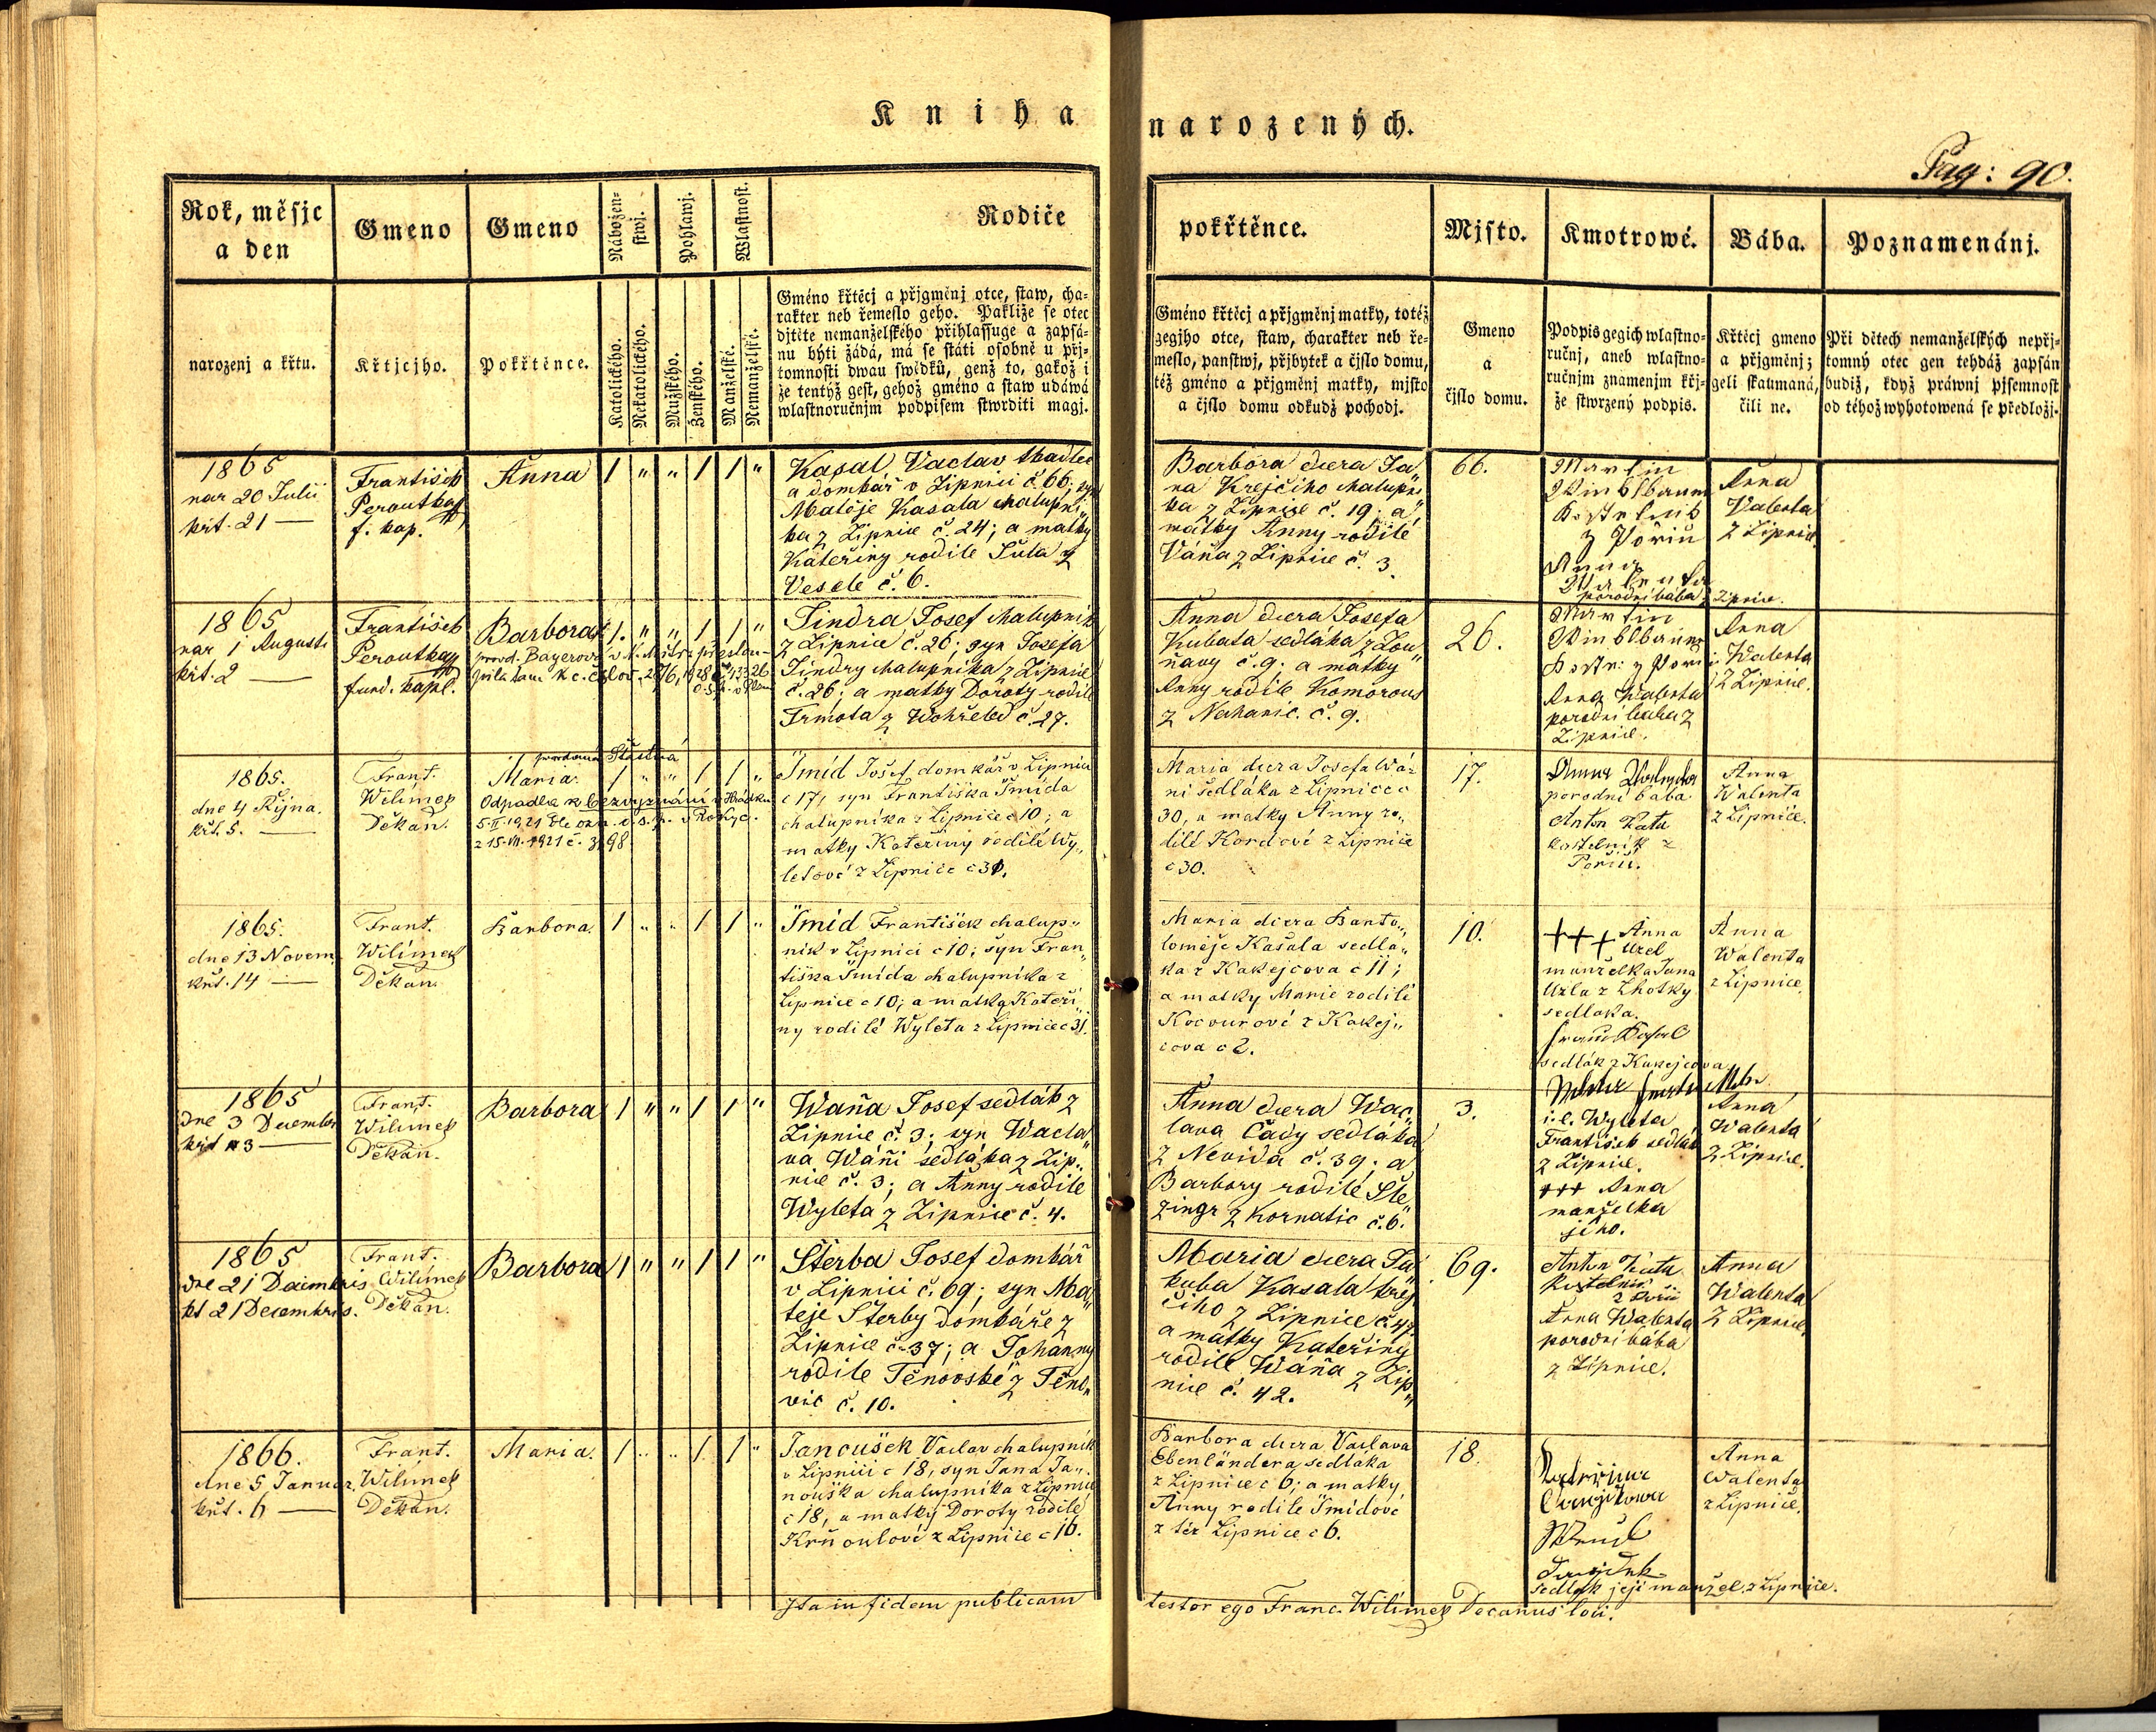 Kniha narozených.
Pag: 90.
Rok, měsjc a den
Gmeno
Gmeno
Nábožen=
stwj.
Pohlawj.
Wlastnost.
Rodiče pokřtěnce.
Mjsto.
Kmotrowé.
Bába.
Poznamenánj.
narozenj a křtu.
Křtjcjho.
Pokřtěnce.
Katolického.
Nekatolického.
Mužského.
Ženského.
Manželské.
Nemanželské.
Gméno křtěcj a přjgmenj otce, staw, cha=
rakter neb řemeslo geho. Pakliže se otec
djtěte nemanželského přihlassuge a zapsá=
nu býti žádá, má se státi osobně u přj=
tomnosti dwau swědků, genž to, gakož i
že tentýž gest, gehož gméno a staw udáwá
wlastnoručnjm podpisem stwrditi magj.
Gméno křtěcj a přjgměnj matky, totéž
gegjho otce, staw, charakter neb ře=
meslo, panstwj, přjbytek a čjslo domu,
též gméno a přjgměnj matky, mjsto
a čjslo domu odkudž pochodj.
Gmeno
a
čjslo domu.
Podpis gegich wlastno=
ručnj, aneb wlastno=
ručnjm znamenjm křj=
že stwrzený podpis.
Křtěcj gmeno
a přjgměnj;
geli skaumaná,
čili ne.
Při dětech nemanželských nepřj=
tomný otec gen tehdáž zapsán
budiž, když práwnj pjsemnost
od téhož wyhotowená se předložj.
1865
nar 20 Julii
křt. 21 —
František
Peroutka
f. kap.
Anna
1 " " 1 1 "
Kasal Vaclav tkadlec
a domkář v Lipnici č. 66; syn
Matěje Kasala chalupní"
ka z Lipnice č. 24; a matky
Kateřiny rodilé Šula z
Veselé č. 6.
Barbora dcera Ja"
na Krejčího chalupní"
ka z Lipnice č. 19; a
matky Anny rodilé
Váňa z Lipnice č. 3.
66.
Martin
Kostelník
z Poříčí
Anna
Walenta
porodní bába z Lipnice.
Anna
Valenta
z Lipnice
1865
nar 1 Augusti
křt. 2 —
František
Peroutka
fund. kapl.
Barbora
1. " " 1 1 "
provd. Bayerová
Jindra Josef chalupník
z Lipnice č. 26; syn Josefa
Jindry chalupníka z Lipnice
č. 26; a matky Doroty rodilé
Trmota z Wohřeled č. 27.
Anna dcera Josefa
Kubata sedláka z Lou"
ňavy č. 9. a matky
Anny rodilé Komorous
z Nechanic. č. 9.
26.
Martin
Anna Walenta
porodní baba z
Lipnice.
Anna
Walenta
z Lipnice.
1865.
dne 4 Října.
křt. 5. —
Frant.
Wilímek
Děkan.
provdaná Šťastná
Maria.
1 " " 1 1 "
Odpadla k bezvyznání v Hrádku
5.II.1921 dle ozn. o.s.p. v Rokyc.
z 15.VII.1921 č. 3198
Šmíd Josef domkář v Lipnici
č 17, syn Františka Šmída
chalupníka z Lipnice č 10; a
matky Kateřiny rodilé Wy"
letové z Lipnice č 31.
Maria dcera Josefa Wá=
ni sedláka z Lipnice č
30, a matky Anny ro"
dilé Kordové z Lipnice
č 30.
17.
Anna Walenta
porodní bába
Anton Kuta
kostelník z
Poříčí.
Anna
Walenta
z Lipnice.
1865.
dne 13 Novem.
křt. 14 —
Frant.
Wilímek
Děkan.
Barbora.
1 " " 1 1 "
Šmíd František chalup"
ník v Lipnici č 10; syn Fran"
tiška Šmída chalupníka z
Lipnice č 10; a matky Kateři"
ny rodilé Wyleta z Lipnice č 31.
Maria dcera Barto"
loměje Kasala sedlá"
ka z Kakejcova č 11;
a matky Marie rodilé
Kocourové z Kakej"
cova č 2.
10.
+++ Anna
Uzel
manželka Jana
Uzla z Lhotky
sedláka.
Franc Kasal
sedlák z Kakejcova
Anna
Walenta
z Lipnice.
1865
dne 3 December
křt 3 —
Frant.
Wilímek
Děkan.
Barbora
1 " " 1 1 "
Waňa Josef sedlák z
Lipnice č. 3; syn Wacla"
va Wáni sedláka z Lip"
nice č. 3; a Anny rodilé
Wyleta z Lipnice č. 4.
Anna dcera Wác"
lava Čady sedláka
z Nevida č. 39; a
Barbory rodilé Šle"
zingr z Kornatic č. 6.
3.
i.e. Wyleta
František sedlák
z Lipnice.
+++ Anna
manželka
jeho.
Anna
Walenta
z Lipnice.
1865
dne 21 Decimbris
kt 21 Decembris.
Frant.
Wilímek
Děkan.
Barbora
1 " " 1 1 "
Šterba Josef domkář
v Lipnici č. 69; syn Ma"
těje Šterby domkáře z
Lipnice č. 37; a Johanny
rodilé Těnovské z Těno"
vic č. 10.
Maria dcera Ja"
kuba Kasala krej"
čího z Lipnice č. 47.
a matky Kateřiny
rodilé Wáňa z Lip"
nice č. 42.
69.
Anton Kuta
Kostelník
z Poříčí
Anna Walenta
porodní bába
z Lipnice.
Anna
Walenta
z Lipnice.
1866.
dne 5 Januar.
křt. 6 —
Frant.
Wilímek
Děkan.
Maria.
1 " " 1 1 "
Janoušek Vaclav chalupník
v Lipnici č 18, syn Jana Ja"
nouška chalupníka z Lipnice
č 18, a matky Doroty rodilé
Krňoulové z Lipnice č 16.
Barbora dcera Vaclava
Ebenländera sedláka
z Lipnice č 6; a matky
Anny rodilé Šmídové
z též Lipnice č 6.
18.
sedlák její manžel z Lipnice.
Anna
Walenta
z Lipnice.
Ita in fidem publicam testor ego Franc. Wilimek Decanus loci.